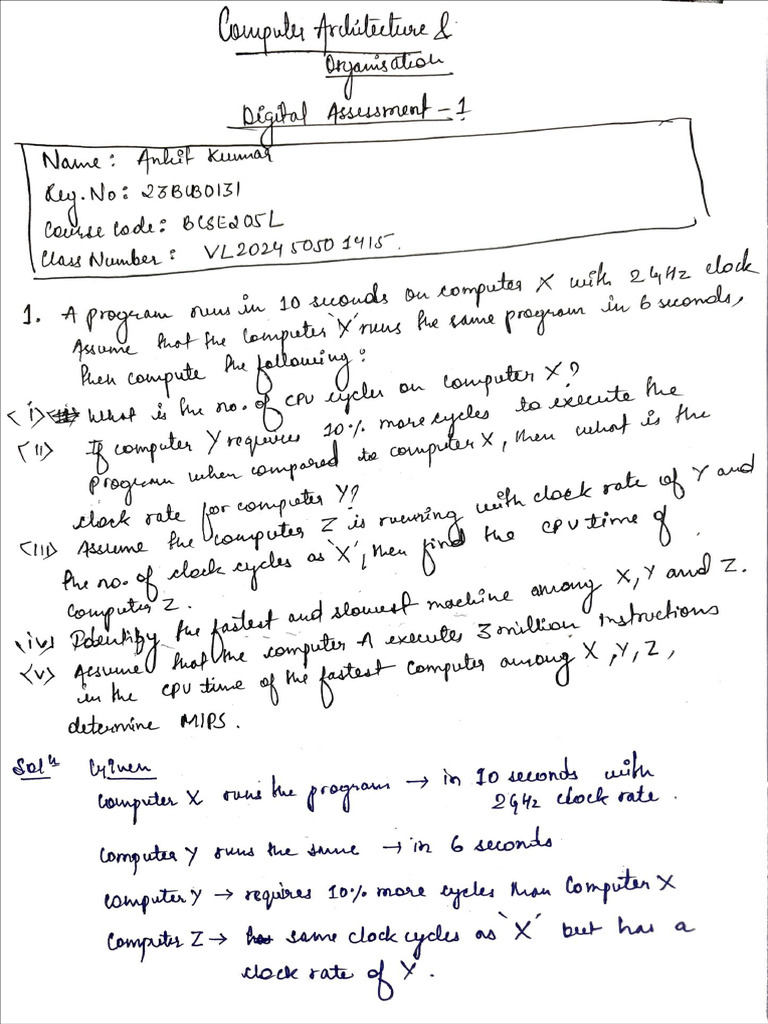 Computer Architecture &
Organisation
Digital Assessment - 1
Name: Ankit Kumar
Reg. No: 23BCB0131
Course Code: BCSE205L
Class Number: VL2024 5050 1415.
1. A program runs in 10 seconds on computer X with 2 GHz clock
Assume that the computer 'X' runs the same program in 6 seconds,
then compute the following:
(i) What is the no. of CPU cycles on computer X?
(ii) If computer Y requires 10% more cycles to execute the
program when compared to computer X, then what is the
clock rate for computer Y?
(iii) Assume the computer Z is running with clock rate of Y and
the no. of clock cycles as 'X', then find the CPU time of
computer Z.
(iv) Identify the fastest and slowest machine among X, Y and Z.
(v) Assume that the computer A executes 3 million instructions
in the CPU time of the fastest computer among X, Y, Z,
determine MIPS.
Solⁿ Given
Computer X runs the program → in 10 seconds with
2 GHz clock rate.
Computer Y runs the same → in 6 seconds
Computer Y → requires 10% more cycles than Computer X
Computer Z → same clock cycles as 'X' but has a
clock rate of Y.